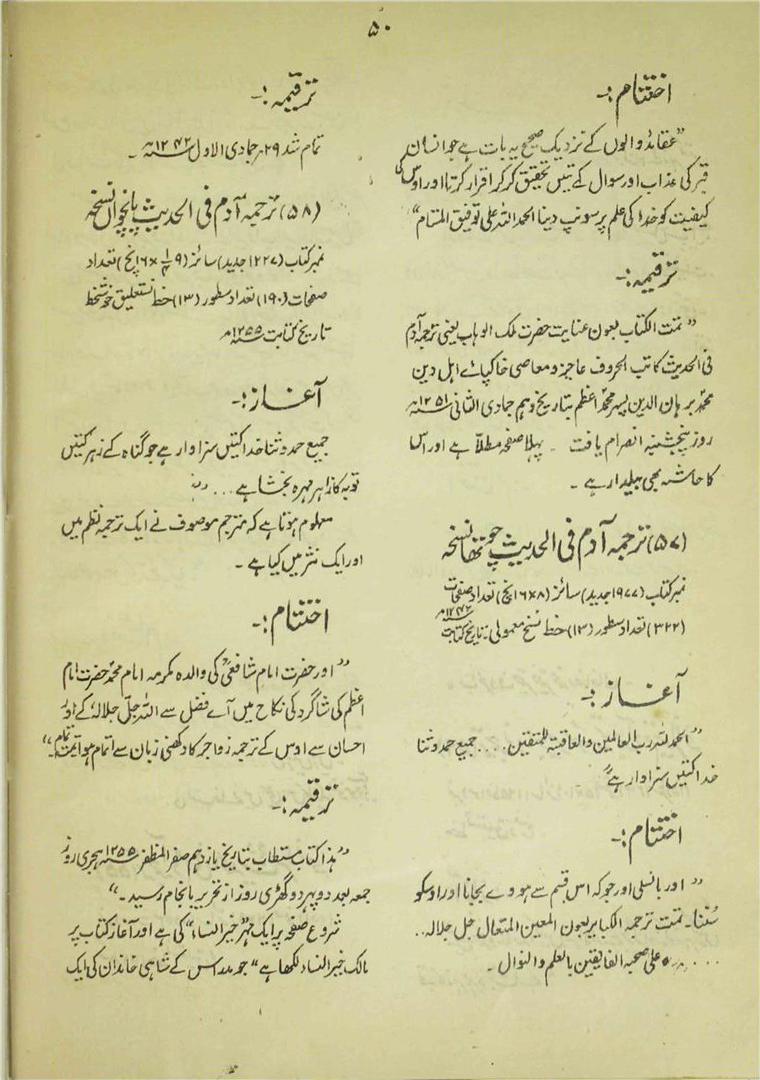 ۵۰
اختتام :-
"عقائد والوں کے نزدیک صحیح یہ بات ہے جو انسان
قبر کی عذاب اور سوال کے تیں تحقیق کر کر اقرار کرتا اور اوس کی
کیفیت کو خدا کی علم پر سونپ دینا الحمد اللہ علی توفیق المتام"
ترقیمہ :-
"تمت الکتاب بعون عنایت حضرت ملک الوہاب یعنی ترجمہ آدم
فی الحدیث کاتب الحروف عاجز و معاصی خاکپائے اہل دین
محمد برہان الدین پسر محمد اعظم بتاریخ دہم جمادی الثانی سنہ ۱۲۵۱ھ
روز پنجشنبہ انصرام یافت ۔ پہلا صفحہ مطلّا ہے اور اس
کا حاشیہ بھی بیلدار ہے ۔
(۵۷) ترجمہ آدم فی الحدیث چوتھا نسخہ
نمبر کتاب (۱۹۷۷ جدید) سائز (۸×۶ انچ) تعداد صفحات
(۳۲۲) تعداد سطور (۱۳) خط نسخ معمولی ۔ تاریخ کتابت سنہ ۱۲۴۲ھ
آغاز :-
"الحمد للہ رب العالمین والعاقبتہ للمتقین .... جمیع حمد و ثنا
خدا کتیں سزاوار ہے"
اختتام :-
"اور بانسلی اور جو کہ اس قسم سے ہووے بجانا اور اوسکو
سُننا ۔ تمت ترجمہ الکبایر بعون المعین المتعال جل جلالہ ..
.... علی صحبہ الفایقین بالعلم والنوال ۔
ترقیمہ :-
تمام شد ۲۹ جمادی الاول سنہ ۱۲۴۲ھ ۔
(۵۸) ترجمہ آدم فی الحدیث پانچواں نسخہ
نمبر کتاب (۱۲۲۷ جدید) سائز (۹ × ۶ ۱/۴ انچ) تعداد
صفحات (۱۹۰) تعداد سطور (۱۳) خط نستعلیق خوشخط
تاریخ کتابت سنہ ۱۲۵۵ھ
آغاز :-
جمیع حمد و ثنا خدا کتیں سزاوار ہے جو گناہ کے زہر کتیں
توبہ کا زاہر مہرہ بخشا ہے ...
معلوم ہوتا ہے کہ مترجم موصوف نے ایک ترجمہ نظم میں
اور ایک نثر میں کیا ہے ۔
اختتام :-
"اور حضرت امام شافعیؒ کی والدہ مکرمہ امام محمد حضرت امام
اعظم کی شاگرد کی نکاح میں آے فضل سے اللہ جلّ جلالہ، کے اور
احسان سے اوس کے ترجمہ زواجر کا دکھنی زبان سے اتمام ہوا تمت تمام ۔"
ترقیمہ :-
"ہذا کتاب مستطاب بتاریخ یازدہم صفر المظفر سنہ ۱۲۵۵ ہجری روز
جمعہ بعد دوپہر دو گھڑی روز از تحریر بانجام رسید ۔"
شروع صفحہ پر ایک مہر "خیر النساء" کی ہے اور آغاز کتاب پر
مالک خیر النساء لکھا ہے" جو مدراس کے شاہی خاندان کی ایک